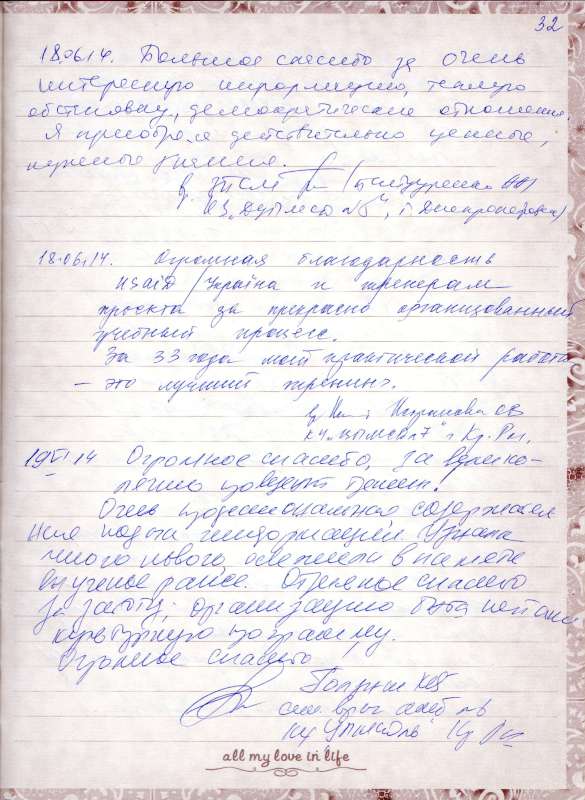 32
18.06.14. Большое спасибо за очень
интересную информацию, теплую
обстановку, демократические отношения.
Я приобрела действительно ценные,
нужные знания.
г. Днепропетровск)
18.06.14. Огромная благодарность
USAID / Україна и тренерам
проекта за прекрасно организованный
учебный процесс.
За 33 года моей практической работы
– это лучший тренинг.
г Кр. Рог.
19 VI 14 Огромное спасибо, за велико-
лепно
Очень профессиональная
подача информации. Узнала
много нового, освежили в памяти
выученое ранее. Огромное спасибо
за заботу, организацию быта, питания
культурную программу.
Огромное спасибо!
Кр Рог
all my love in life